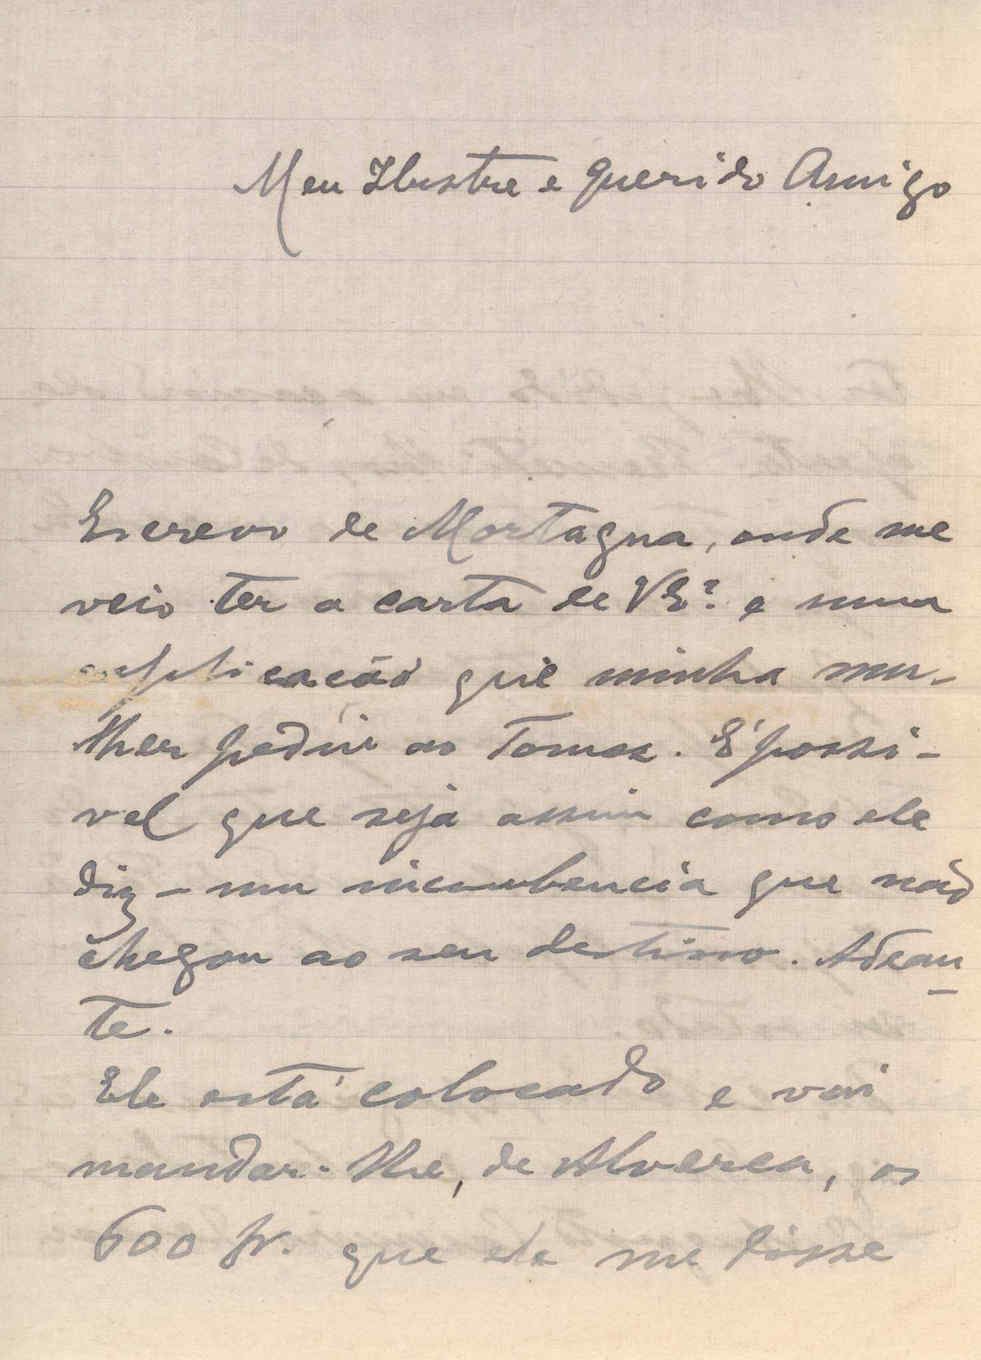 Meu Ilustre e querido Amigo
Escrevo de Mortagua, onde me
veio ter a carta de VEª. e uma
explicação que minha mu-
lher pediu ao Tomaz. É possi-
vel que seja assim como ele
diz - uma incumbencia que não
chegou ao seu destino. Adean
te.
Ele está colocado e vai
mandar-lhe, de Alverca, os
600 fr. que ele me disse